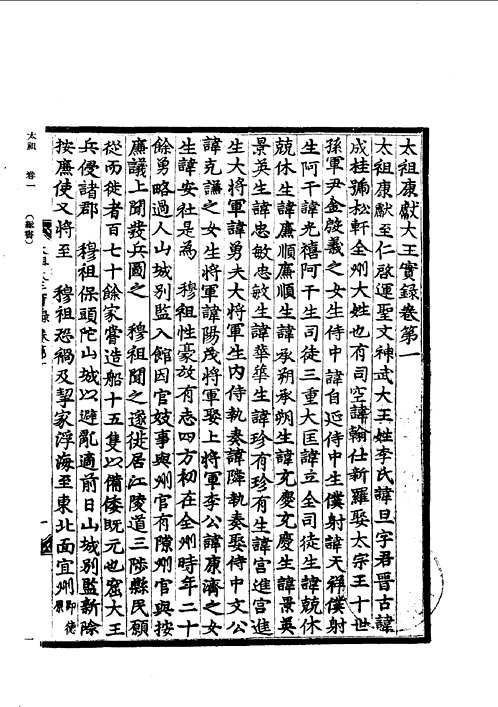 太祖康獻大王實錄卷第一
太祖康獻至仁啓運聖文神武大王姓李氏諱旦字君晉古諱
成桂號松軒全州大姓也有司空諱翰仕新羅娶太宗王十世
孫軍尹金殷義之女生侍中諱自延侍中生僕射諱天祥僕射
生阿干諱光禧阿干生司徒三重大匡諱立全司徒生諱兢休
兢休生諱廉順廉順生諱承朔承朔生諱充慶充慶生諱景英
景英生諱忠敏忠敏生諱華華生諱珍有珍有生諱宮進宮進
生大將軍諱勇夫大將軍生內侍執奏諱隣執奏娶侍中文公
諱克謙之女生將軍諱陽茂將軍娶上將軍李公諱康濟之女
生諱安社是為 穆祖性豪放有志四方初在全州時年二十
餘勇略過人山城別監入館因官妓事與州官有隙州官與按
廉議上聞發兵圖之 穆祖聞之遂徙居江陵道三陟縣民願
從而徙者百七十餘家嘗造船十五隻以備倭既元也窟大王
兵侵諸郡 穆祖保頭陀山城以避亂適前日山城別監新除
按廉使又將至 穆祖恐禍及挈家浮海至東北面宜州即德源
太祖 卷一 (總書) 一